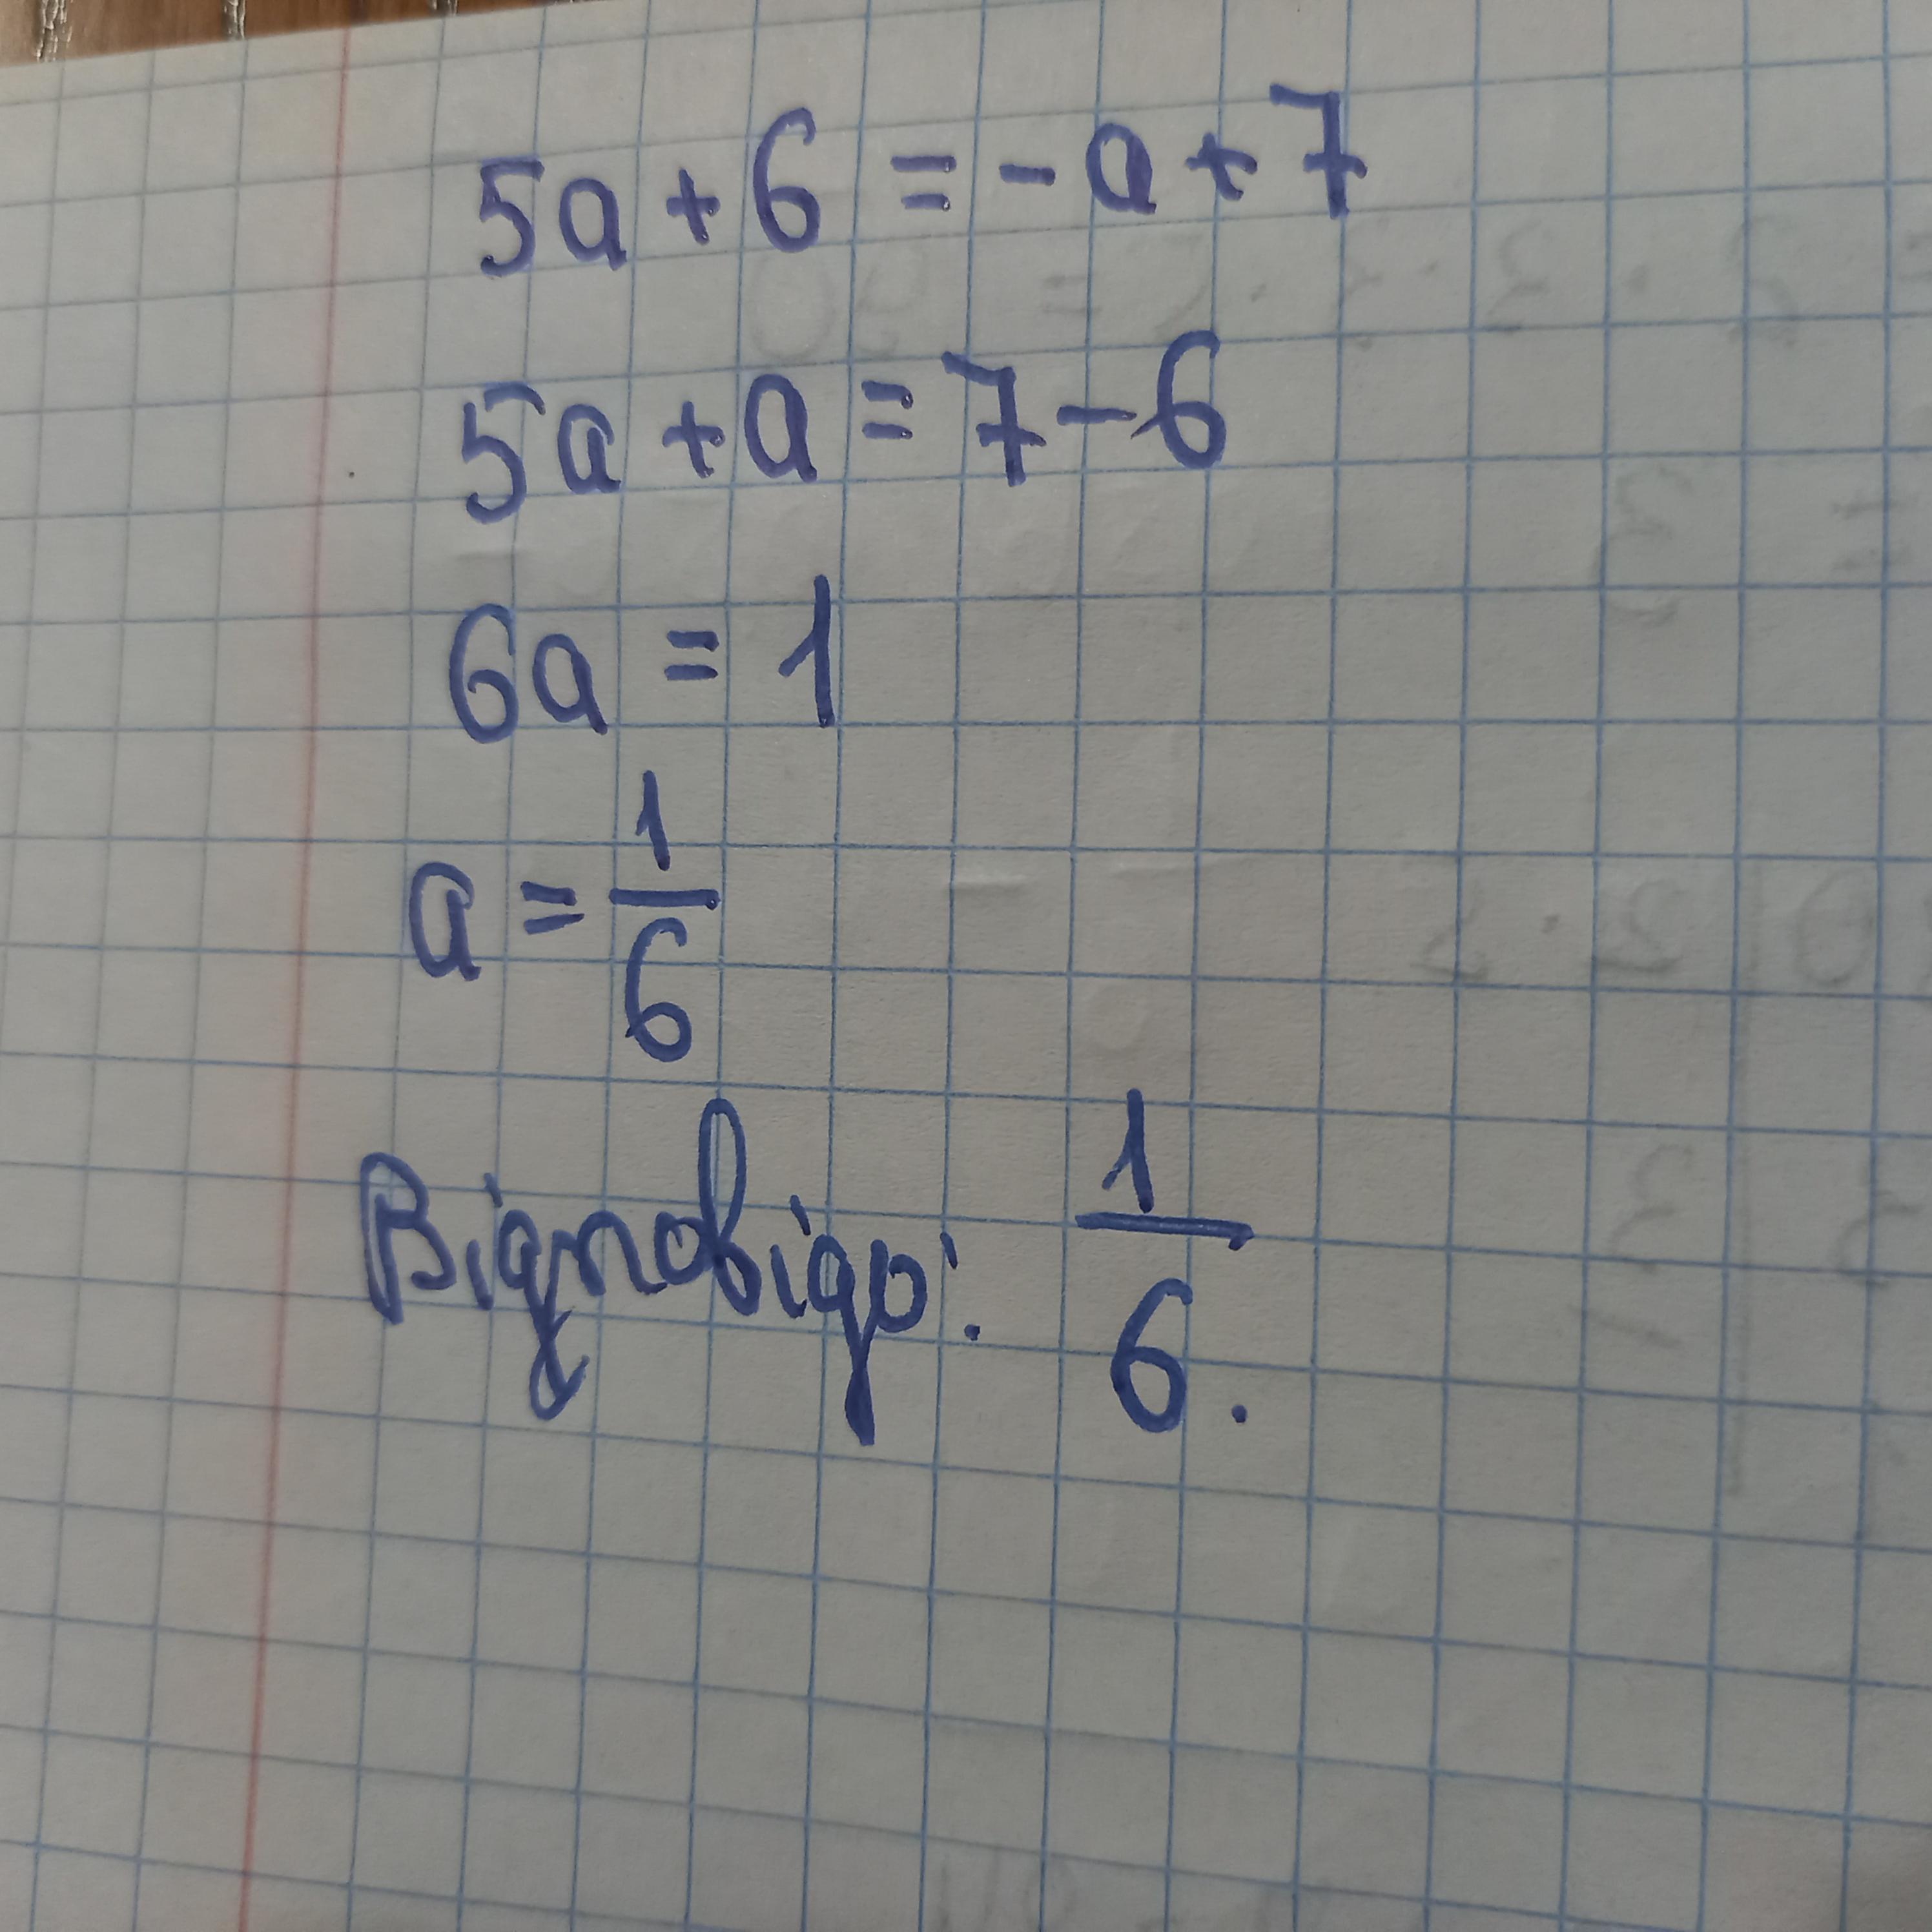 5a + 6 = - a + 7
5a + a = 7 - 6
6a = 1
a = 1/6
Відповідь: 1/6.